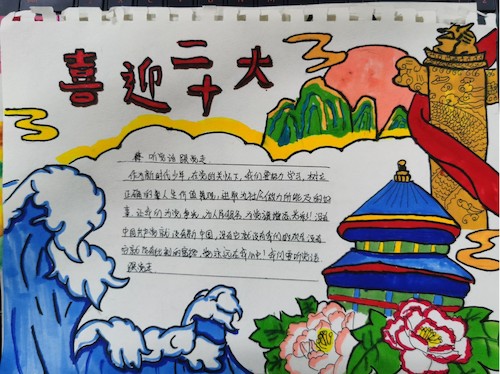 喜迎二十大
听党话 跟党走
作为新时代少年，在党的关怀下，我们要努力学习，树立
正确的人生价值观，进取为社会做力所能及的
事，让我们为党争光，为人民服务，为党旗增添光彩！没有
中国共产党就没有新中国，没有党就没有我们的现在没有
党就没有
我们要听党话
跟党走